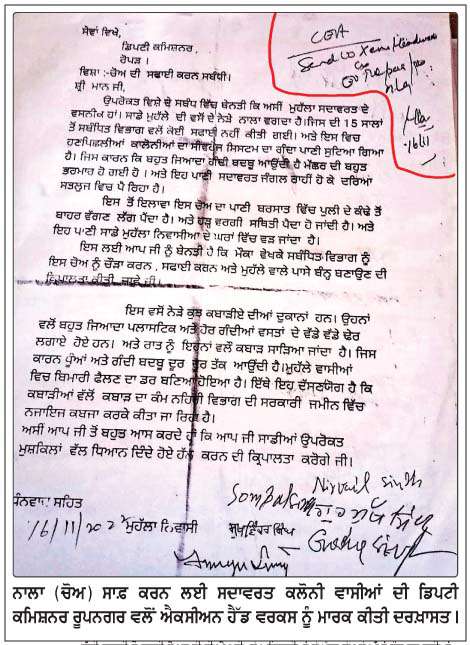 ਸੇਵਾ ਵਿਖੇ,
ਡਿਪਟੀ ਕਮਿਸ਼ਨਰ,
ਰੋਪੜ।
ਵਿਸ਼ਾ:-ਚੋਅ ਦੀ ਸਫਾਈ ਕਰਨ ਸਬੰਧੀ।
ਸ਼੍ਰੀ ਮਾਨ ਜੀ,
ਉਪਰੋਕਤ ਵਿਸ਼ੇ ਦੇ ਸਬੰਧ ਵਿੱਚ ਬੇਨਤੀ ਕਿ ਅਸੀਂ ਮੁਹੱਲਾ ਸਦਾਵਰਤ ਦੇ
ਵਸਨੀਕ ਹਾਂ। ਸਾਡੇ ਮੁਹੱਲੇ ਦੀ ਵਸੋਂ ਦੇ ਨੇੜੇ ਨਾਲਾ ਵਗਦਾ ਹੈ।ਜਿਸ ਦੀ 15 ਸਾਲਾਂ
ਤੋਂ ਸਬੰਧਿਤ ਵਿਭਾਗ ਵਲੋਂ ਕੋਈ ਸਫਾਈ ਨਹੀਂ ਕੀਤੀ ਗਈ। ਅਤੇ ਇਸ ਵਿਚ
ਕਾਲੋਨੀਆਂ ਦਾ ਸੀਵਰੇਜ ਸਿਸਟਮ ਦਾ ਗੰਦਾ ਪਾਣੀ ਸੁਟਿਆ ਗਿਆ
ਹੈ। ਜਿਸ ਕਾਰਨ ਕਿ ਬਹੁਤ ਜਿਆਦਾ ਗੰਦੀ ਬਦਬੂ ਆਉਂਦੀ ਹੈ ਮੱਛਰ ਦੀ ਬਹੁਤ
ਭਰਮਾਰ ਹੋ ਗਈ ਹੋ । ਅਤੇ ਇਹ ਪਾਣੀ ਸਦਾਵਰਤ ਜੰਗਲ ਰਾਹੀਂ ਹੋ ਕੇ ਦਰਿਆ
ਸਤਲੁਜ ਵਿਚ ਪੈ ਰਿਹਾ ਹੈ।
ਇਸ ਤੋਂ ਇਲਾਵਾ ਇਸ ਚੋਅ ਦਾ ਪਾਣੀ ਬਰਸਾਤ ਵਿੱਚ ਪੁਲੀ ਦੇ ਕੰਢੇ ਤੋਂ
ਬਾਹਰ ਵੱਗਣ ਲੱਗ ਪੈਂਦਾ ਹੈ। ਅਤੇ ਹੜ੍ਹ ਵਰਗੀ ਸਥਿਤੀ ਪੈਦਾ ਹੋ ਜਾਂਦੀ ਹੈ। ਅਤੇ
ਇਹ ਪਾਣੀ ਸਾਡੇ ਮੁਹੱਲਾ ਨਿਵਾਸੀਆਂ ਦੇ ਘਰਾਂ ਵਿੱਚ ਵੜ ਜਾਂਦਾ ਹੈ।
ਇਸ ਲਈ ਆਪ ਜੀ ਨੂੰ ਬੇਨਤੀ ਹੈ ਕਿ ਮੌਕਾ ਵੇਖਕੇ ਸਬੰਧਿਤ ਵਿਭਾਗ ਨੂੰ
ਇਸ ਚੋਅ ਨੂੰ ਚੌੜਾ ਕਰਨ , ਸਫਾਈ ਕਰਨ ਅਤੇ ਮੁਹੱਲੇ ਵਾਲੇ ਪਾਸੇ ਬੰਨ੍ਹ ਬਣਾਉਣ ਦੀ
ਕੀਤੀ ਜਾਵੇ ਜੀ।
ਇਸ ਵਸੋਂ ਨੇੜੇ ਕੁਝ ਕਬਾੜੀਏ ਦੀਆਂ ਦੁਕਾਨਾਂ ਹਨ। ਉਹਨਾਂ
ਵਲੋਂ ਬਹੁਤ ਜਿਆਦਾ ਪਲਾਸਟਿਕ ਅਤੇ ਹੋਰ ਗੰਦੀਆਂ ਵਸਤਾਂ ਦੇ ਵੱਡੇ ਵੱਡੇ ਢੇਰ
ਲਗਾਏ ਹੋਏ ਹਨ। ਅਤੇ ਰਾਤ ਨੂੰ ਇਹਨਾਂ ਵਲੋਂ ਕਬਾੜ ਸਾੜਿਆ ਜਾਂਦਾ ਹੈ। ਜਿਸ
ਕਾਰਨ ਧੂੰਆਂ ਅਤੇ ਗੰਦੀ ਬਦਬੂ ਦੂਰ ਦੂਰ ਤੱਕ ਆਉਂਦੀ ਹੈ।ਮੁਹੱਲੇ ਵਾਸੀਆਂ
ਵਿਚ ਬਿਮਾਰੀ ਫੈਲਣ ਦਾ ਡਰ ਬਣਿਆ ਹੋਇਆ ਹੈ। ਇੱਥੇ ਇਹ ਦੱਸਣਯੋਗ ਹੈ ਕਿ
ਕਬਾੜੀਆਂ ਵੱਲੋਂ ਕਬਾੜ ਦਾ ਕੰਮ ਨਹਿਰੀ ਵਿਭਾਗ ਦੀ ਸਰਕਾਰੀ ਜਮੀਨ ਵਿੱਚ
ਨਜਾਇਜ ਕਬਜਾ ਕਰਕੇ ਕੀਤਾ ਜਾ ਰਿਹਾ ਹੈ।
ਅਸੀਂ ਆਪ ਜੀ ਤੋਂ ਬਹੁਤ ਆਸ ਕਰਦੇ ਹਾਂ ਕਿ ਆਪ ਜੀ ਸਾਡੀਆਂ ਉਪਰੋਕਤ
ਮੁਸ਼ਕਿਲਾਂ ਵੱਲ ਧਿਆਨ ਦਿੰਦੇ ਹੋਏ ਹੱਲ ਕਰਨ ਦੀ ਕ੍ਰਿਪਾਲਤਾ ਕਰੋਗੇ ਜੀ।
ਧੰਨਵਾਦ ਸਹਿਤ
Nirvail Singh
16/11/202
ਮੁਹੱਲਾ ਨਿਵਾਸੀ
16/11
ਨਾਲਾ (ਚੋਅ) ਸਾਫ਼ ਕਰਨ ਲਈ ਸਦਾਵਰਤ ਕਲੋਨੀ ਵਾਸੀਆਂ ਦੀ ਡਿਪਟੀ
ਕਮਿਸ਼ਨਰ ਰੂਪਨਗਰ ਵਲੋਂ ਐਕਸੀਅਨ ਹੈੱਡ ਵਰਕਸ ਨੂੰ ਮਾਰਕ ਕੀਤੀ ਦਰਖ਼ਾਸਤ।